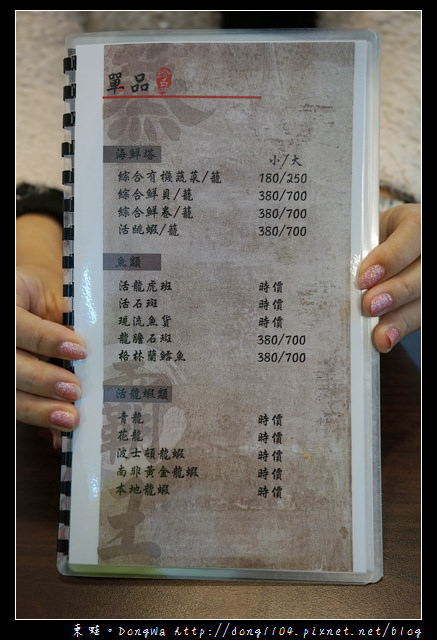 單品
海鮮塔
小/大
綜合有機蔬菜/籠 180/250
綜合鮮貝/籠 380/700
綜合鮮卷/籠 380/700
活跳蝦/籠 380/700
魚類
活龍虎班 時價
活石斑 時價
現流魚貨 時價
龍膽石斑 380/700
格林蘭鱈魚 380/700
活龍蝦類
青龍 時價
花龍 時價
波士頓龍蝦 時價
南非黃金龍蝦 時價
本地龍蝦 時價
東蛙。DongWa http://dong1104.pixnet.net/blog